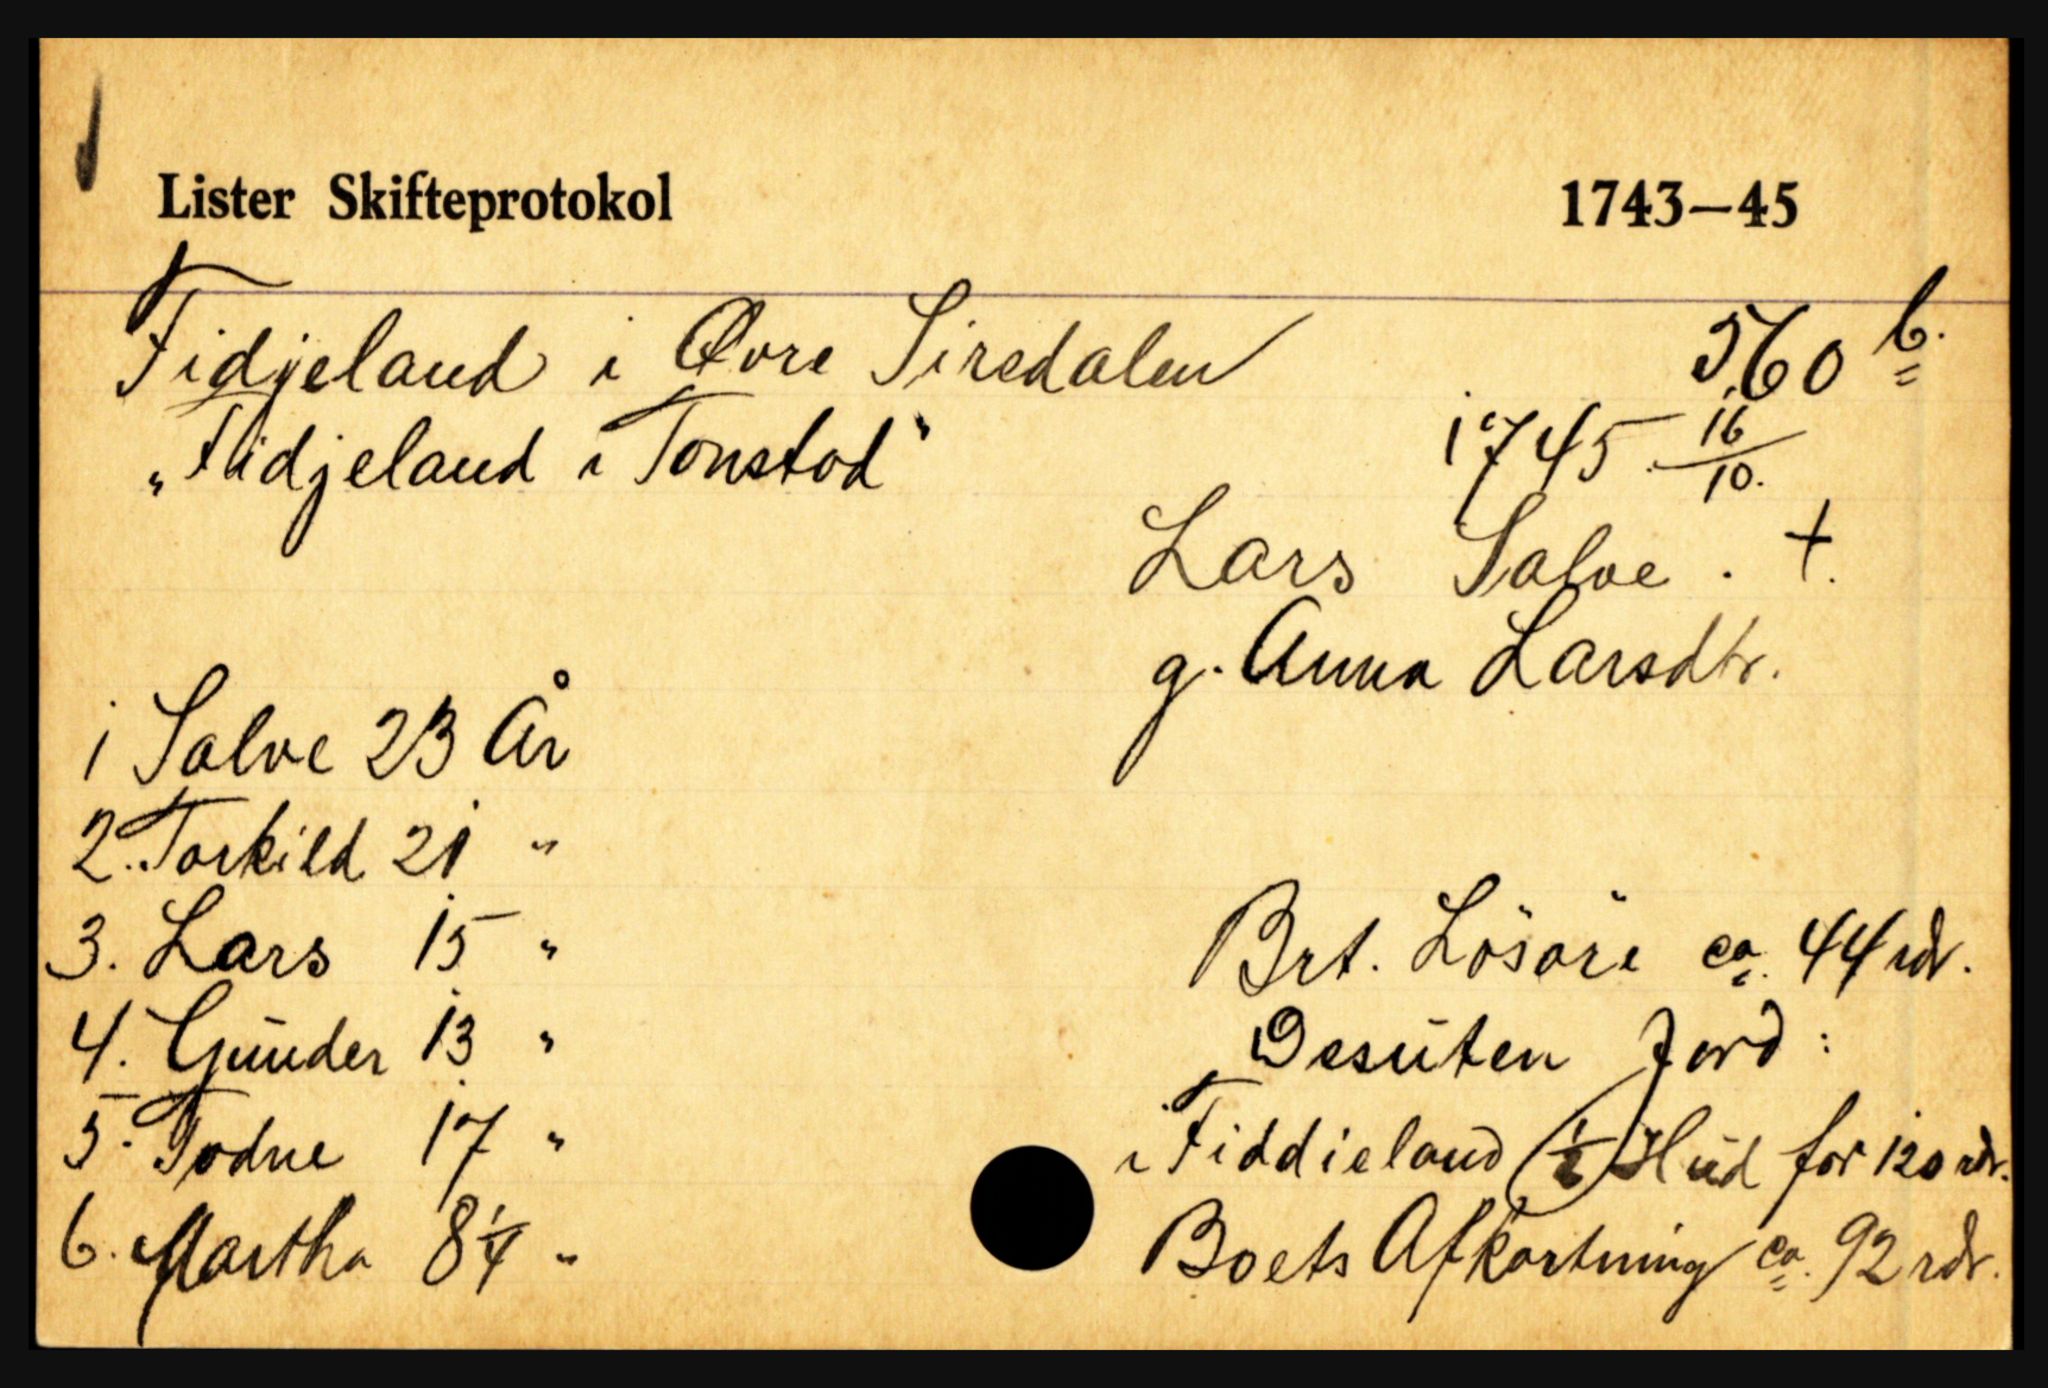 Lister Skifteprotokol 1743–45
Fidjeland i Øvre Siredalen 560 b.
„Fidjeland i Tonstod" 1745 16/10.
Lars Salve. +.
g. Anna Larsdtr.
1 Salve 23 År
2. Torkild 21 "
3. Lars 15 "
4. Gunder 13 "
5. Todne 17 "
6. Martha 8 1/4 "
Brt. Lösöre ca. 44 rdr.
Desuten Jord:
i Fiddieland (1/2 Hud for 120 rdr.
Boets Afkortning ca. 92 rdr.